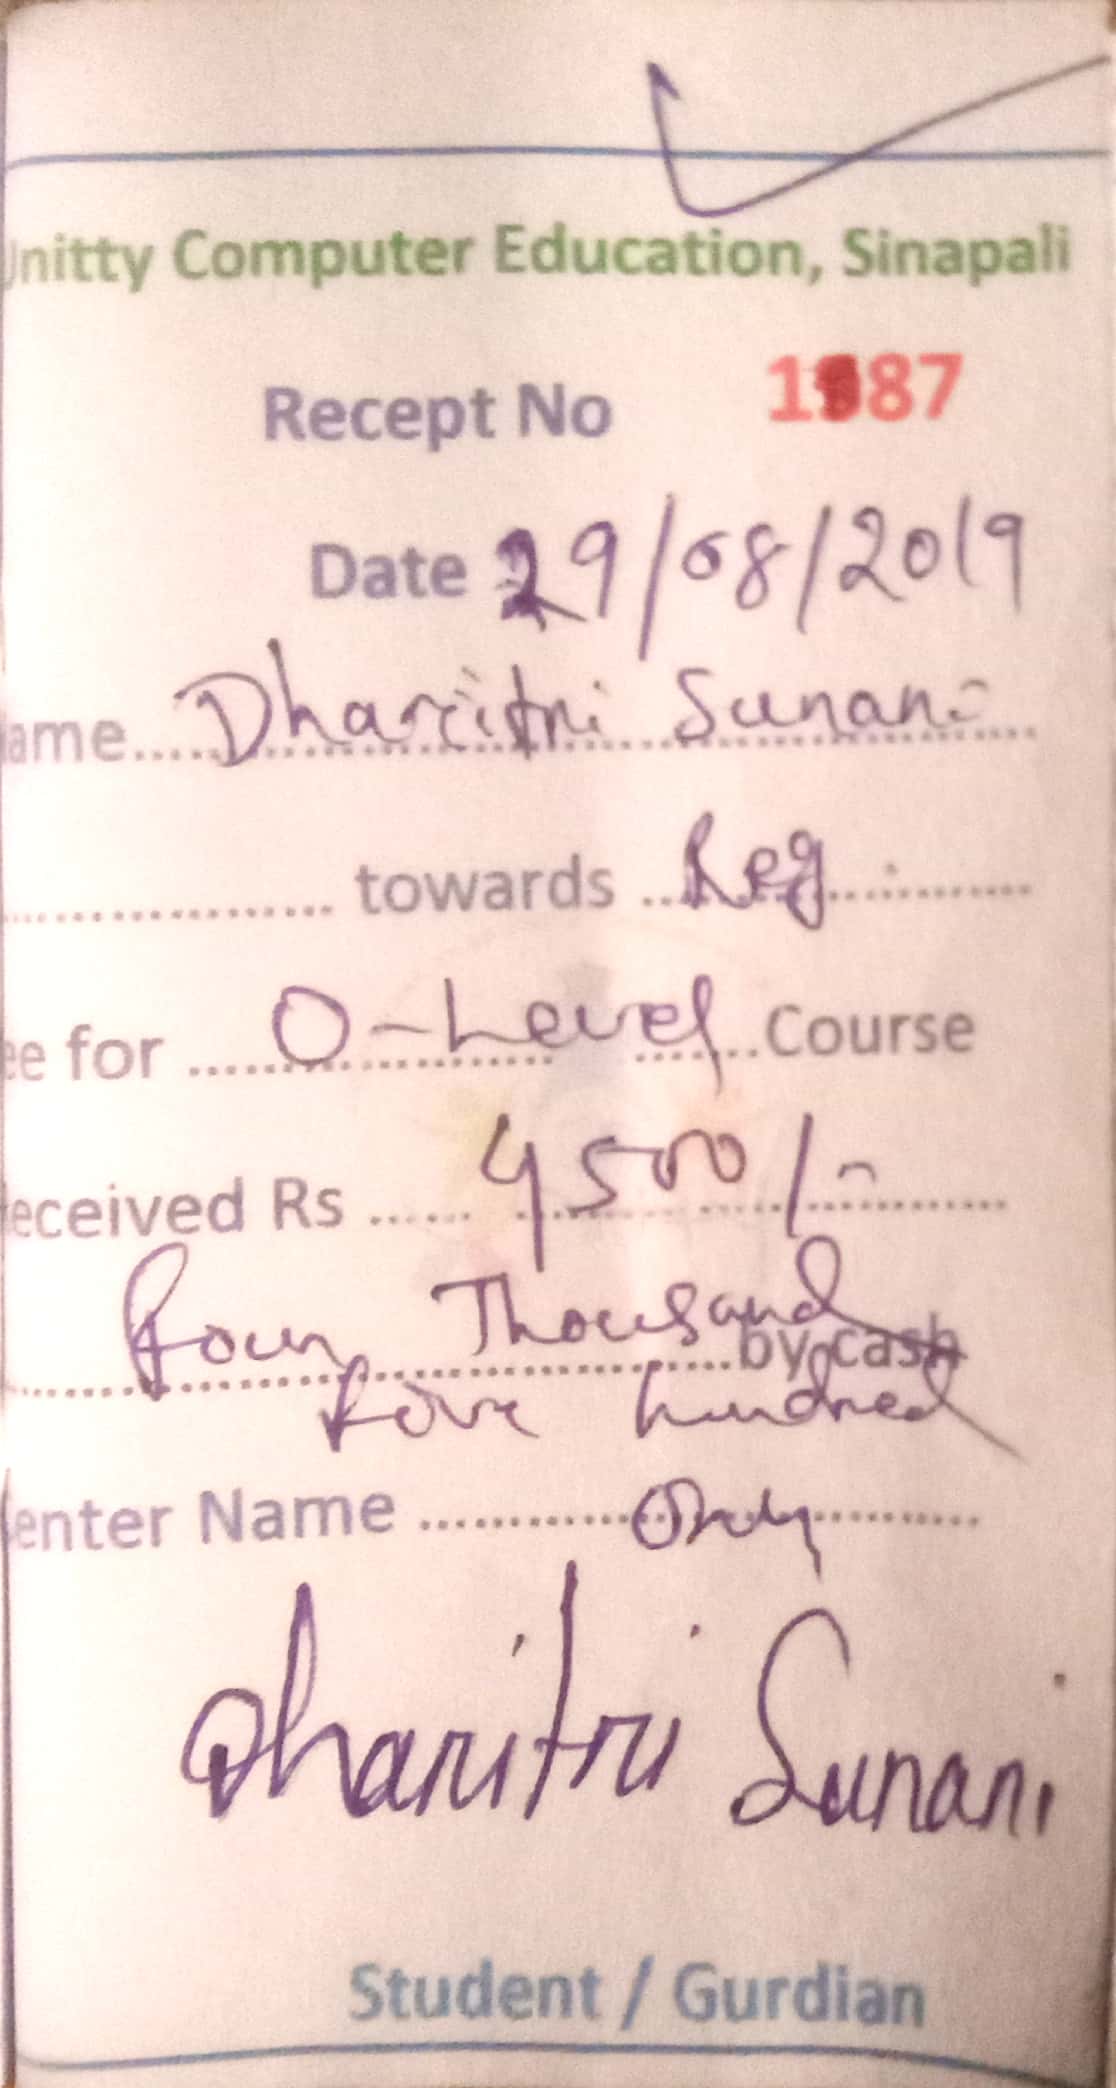 Unitty Computer Education, Sinapali
Recept No 1987
Date 29/08/2019
ame..... Dharitri Sunani
.................. towards ..Reg............
ee for ....O-Level....Course
eceived Rs ...... 4500/-
four Thousand
..................by cash
five hundred
enter Name ..............only..........
Dharitri Sunani
Student / Gurdian